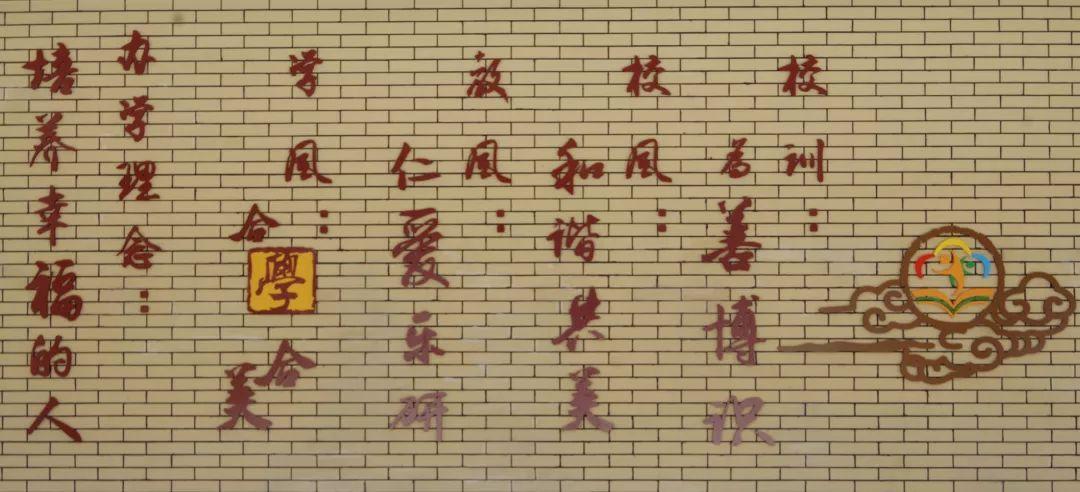 校训：
为善博识
校风：
和谐共美
教风：
仁爱乐研
学风：
合學合美
办学理念：
培养幸福的人